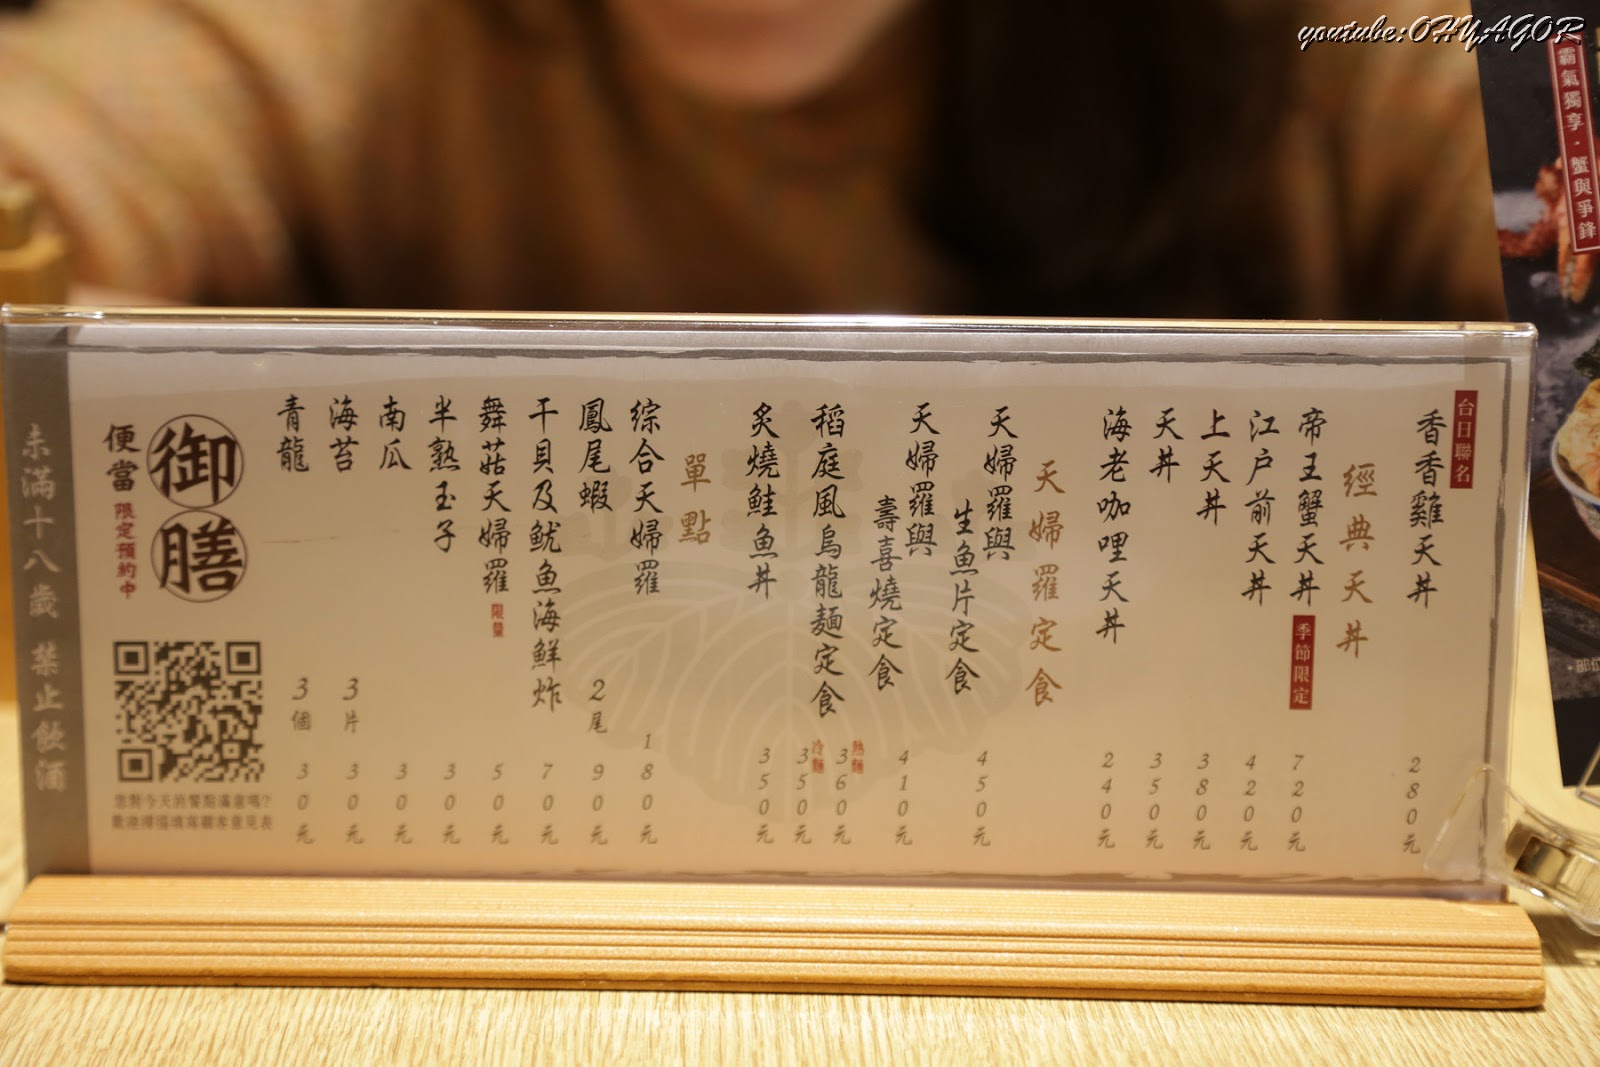 youtube:OHYAGOR
霸氣獨享·蟹與爭鋒
台日聯名
香香雞天丼 280元
經典天丼
帝王蟹天丼 季節限定 720元
江戶前天丼 420元
上天丼 380元
天丼 350元
海老咖哩天丼 240元
天婦羅定食
天婦羅與
生魚片定食 450元
天婦羅與
壽喜燒定食 410元
稻庭風烏龍麵定食 熱麵 360元
冷麵 350元
炙燒鮭魚丼 350元
單點
綜合天婦羅 180元
鳳尾蝦 2尾 90元
干貝及魷魚海鮮炸 70元
舞菇天婦羅 限量 50元
半熟玉子 30元
南瓜 30元
海苔 3片 30元
青龍 3個 30元
御膳
便當 限定預約中
您對今天的餐點滿意嗎?
歡迎掃描填寫顧客意見表
未滿十八歲 禁止飲酒